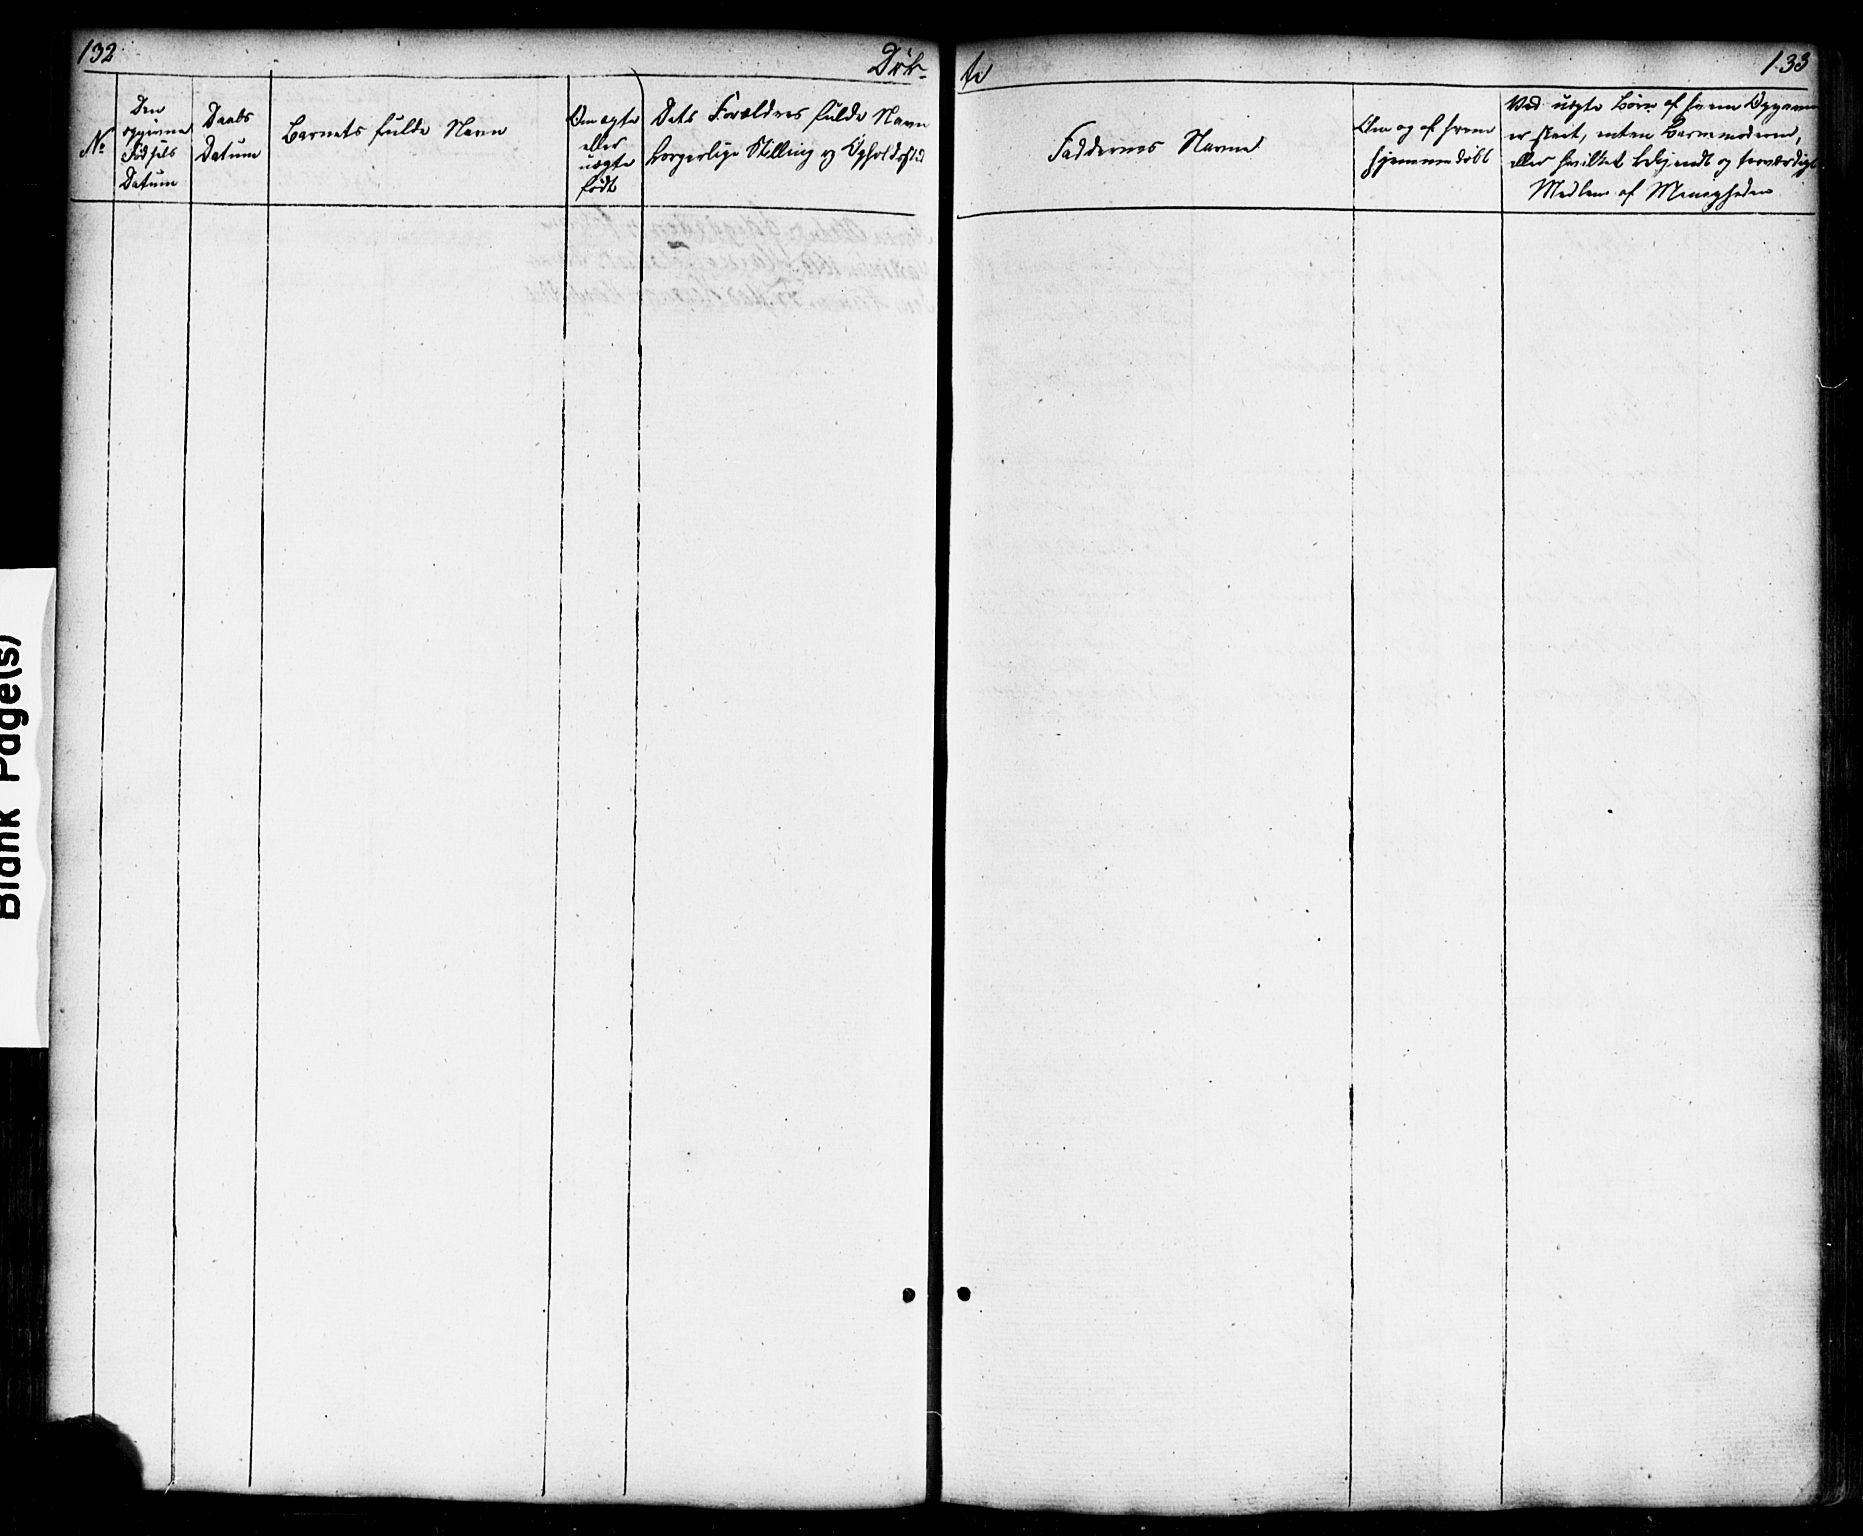 132
Døb-
No
Den
opgivne
Fødsels
Datum
Daabs
Datum
Barnets fulde Navn
Om ægte
eller
uægte
født
Dets Forældres fulde Navn
borgerlige Stilling og Opholdssted
te
133
Faddernes Navne
Om og af hvem
hjemmedøbt
Ved uægte Børn af hvem Opgaven
er skeet, enten Barnemoderen,
eller hvilket bekjendt og troværdigt
Medlem af Menigheden
Blank Page(s)